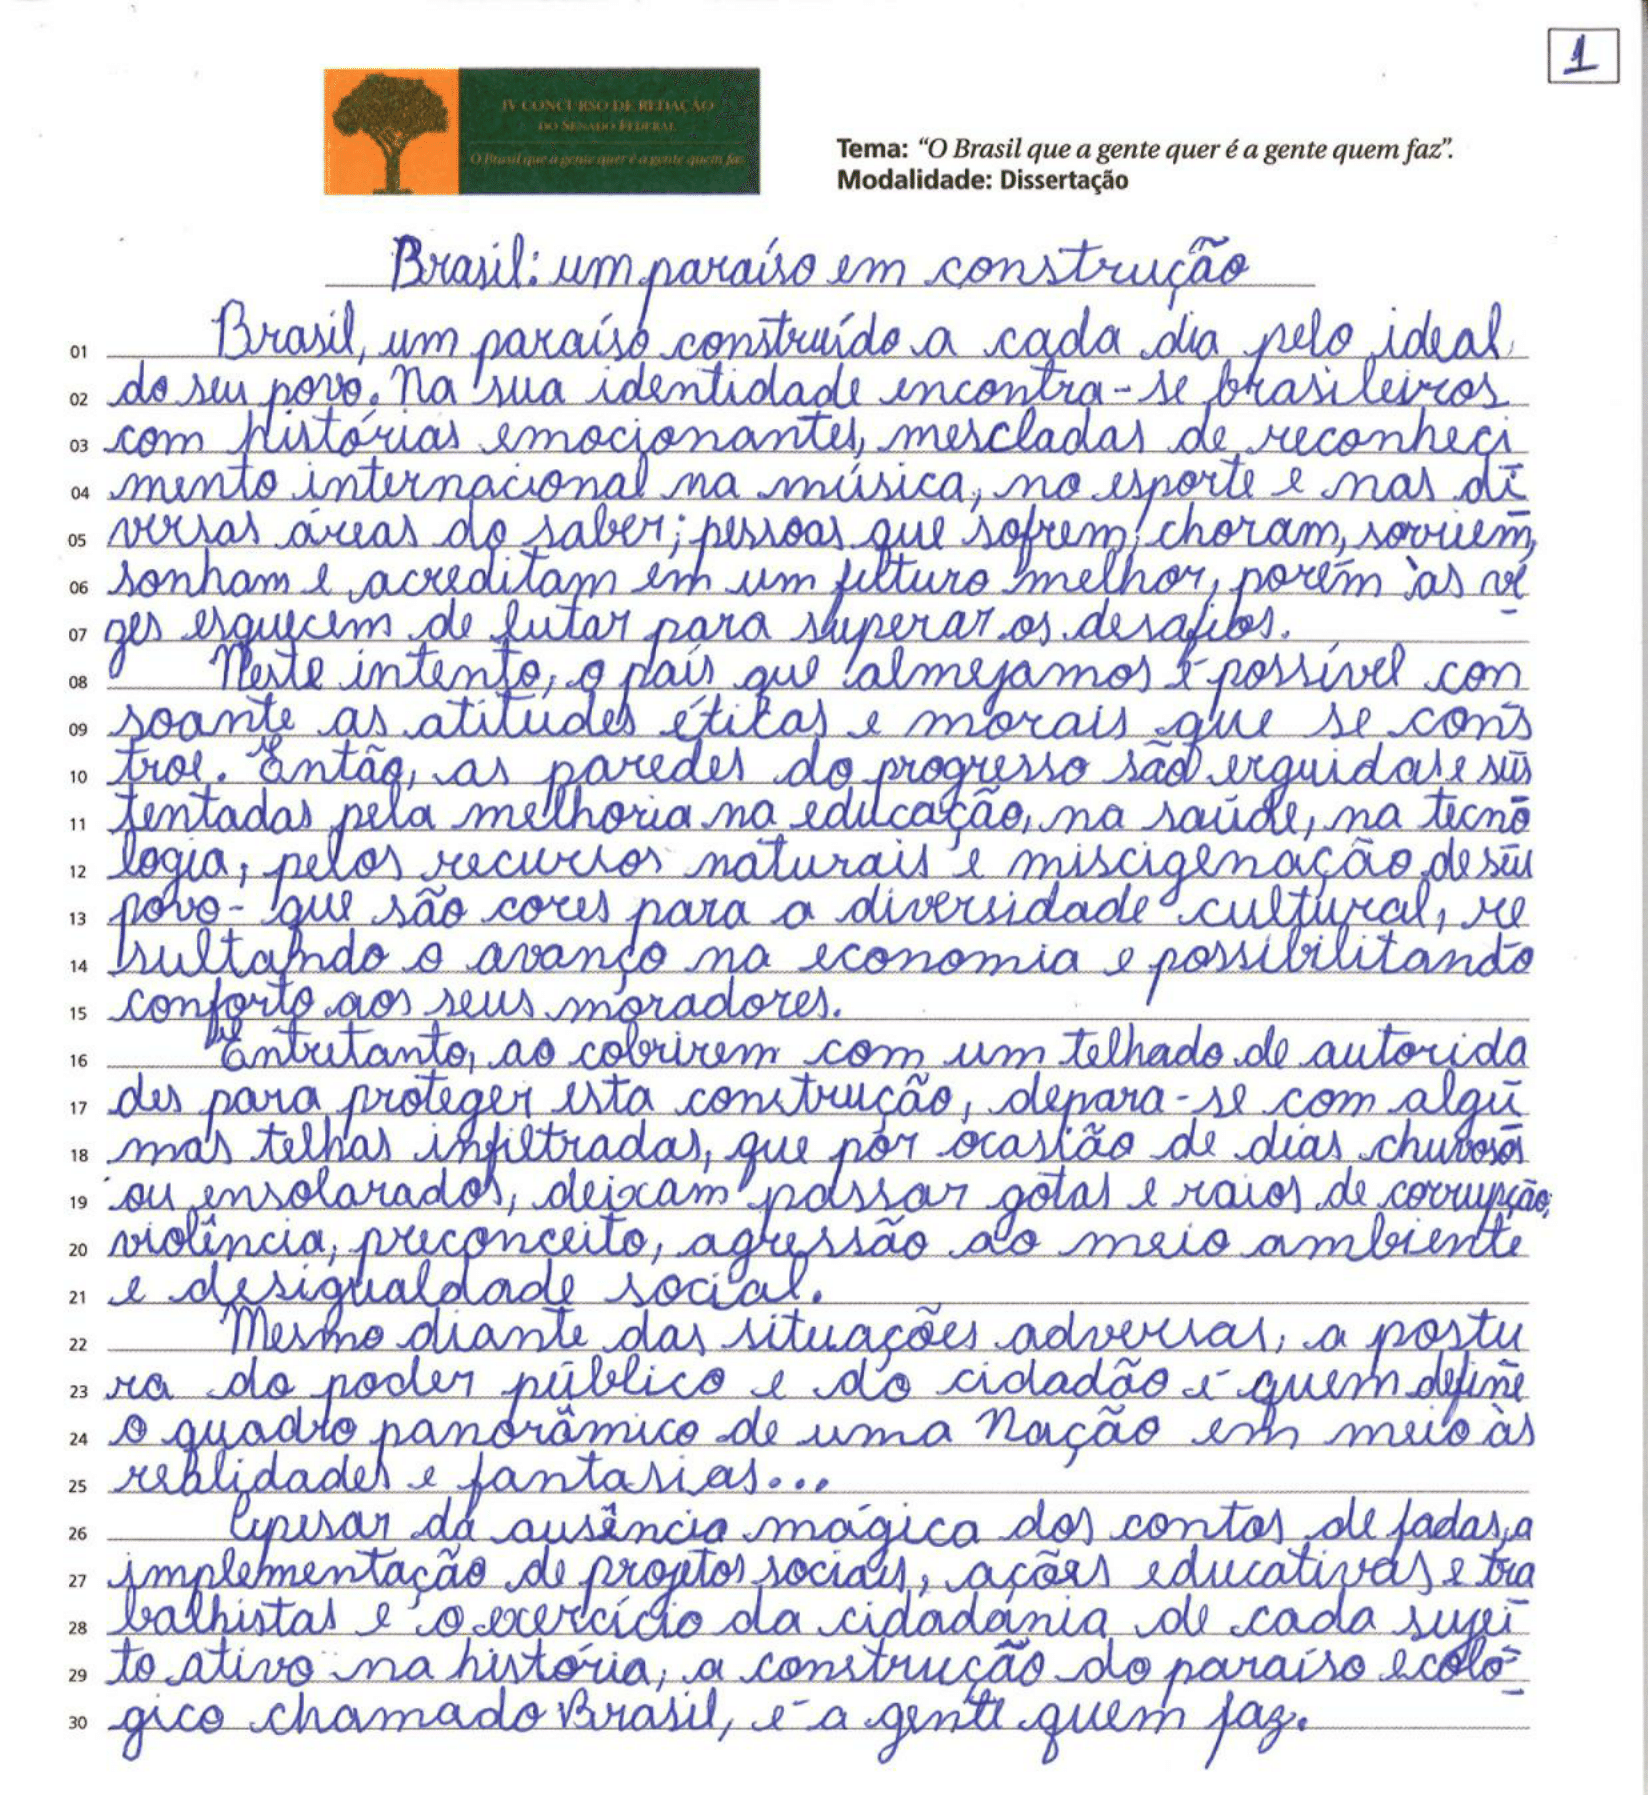 1
IV CONCURSO DE REDAÇÃO
DO SENADO FEDERAL
O Brasil que a gente quer é a gente quem faz
Tema: “O Brasil que a gente quer é a gente quem faz”.
Modalidade: Dissertação
Brasil: um paraíso em construção
01 Brasil, um paraíso construído a cada dia pelo ideal
02 do seu povo. Na sua identidade encontra-se brasileiros
03 com histórias emocionantes, mescladas de reconheci
04 mento internacional na música, no esporte e nas di
05 versas áreas do saber; pessoas que sofrem, choram, sorriem,
06 sonham e acreditam em um futuro melhor, porém às ve
07 zes esquecem de lutar para superar os desafios.
08 Neste intento, o país que almejamos é possível con
09 soante as atitudes éticas e morais que se cons
10 troe. Então, as paredes do progresso são erguidas e sus
11 tentadas pela melhoria na educação, na saúde, na tecno
12 logia, pelos recursos naturais e miscigenação de seu
13 povo - que são cores para a diversidade cultural, re
14 sultando o avanço na economia e possibilitando
15 conforto aos seus moradores.
16 Entretanto, ao cobrirem com um telhado de autorida
17 des para proteger esta construção, depara-se com algu
18 mas telhas infiltradas, que por ocasião de dias chuvosos
19 ou ensolarados, deixam passar gotas e raios de corrupção,
20 violência, preconceito, agressão ao meio ambiente
21 e desigualdade social.
22 Mesmo diante das situações adversas, a postu
23 ra do poder público e do cidadão é quem define
24 o quadro panorâmico de uma Nação em meio às
25 realidades e fantasias...
26 Apesar da ausência mágica dos contos de fadas, a
27 implementação de projetos sociais, ações educativas e tra
28 balhistas e o exercício da cidadania de cada sujei
29 to ativo na história, a construção do paraíso ecoló-
30 gico chamado Brasil, é a gente quem faz.